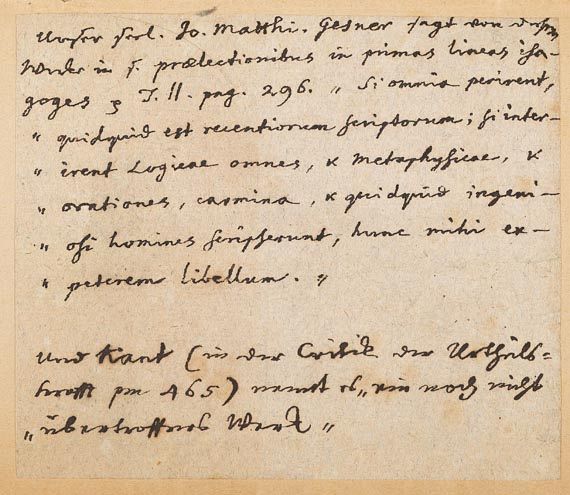 Unser seel. Jo. Matthi. Gesner sagt von diesem
Werke in s. prælectionibus in primas lineas isa-
goges T. II. pag. 296. „ Si omnia perirent,
„ quidquid est recentiorum scriptorum; si inter-
„ irent Logicae omnes, & Metaphysicae, &
„ orationes, carmina, & quidquid ingeni-
„ osi homines scripserunt, hunc mihi ex-
„ peterem libellum. „
Und Kant (in der Critik der Urtheils-
krafft pm 465) nennt es „ ein noch nicht
„ übertroffnes Werk „